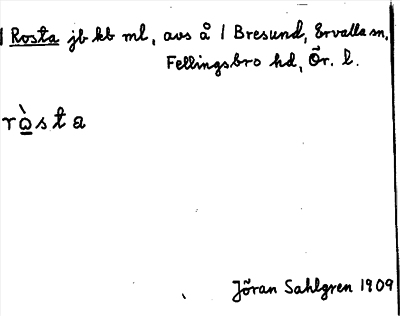 Rosta jb kb ml, avs å l Bresund, Ervalla sn,
Fellingsbro hd, Ör. l.
ròsta
Jöran Sahlgren 1909